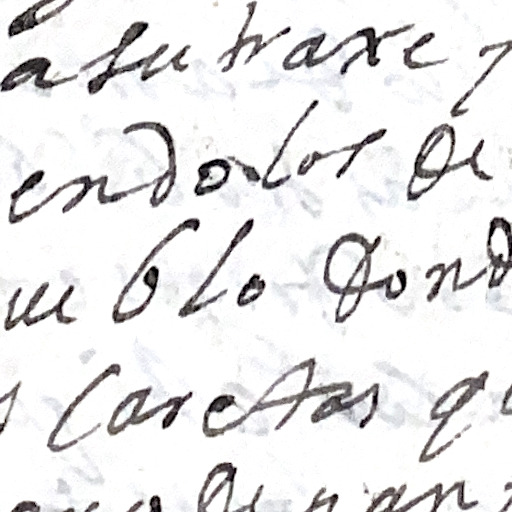 a su traxe
endolos de
ueblo dond
caretas q